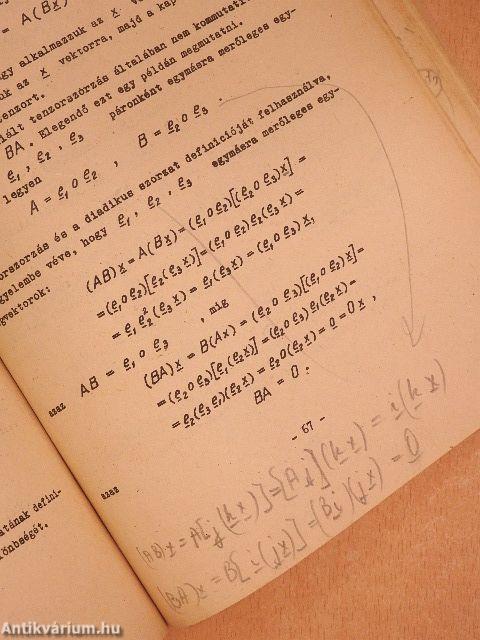 = A(Bx)
gy alkalmazzuk az x vek
ok az x vektorra, majd a kap
tenzort.
iált tenzorszorzás általában nem kommutatí
BA. Elegendő ezt egy példán megmutatni.
e₁, e₂, e₃ páronként egymásra merőleges egy-
legyen
A = e₁ ∘ e₂ , B = e₂ ∘ e₃ .
orszorzás és a diadikus szorzat definicióját felhasználva,
gyelembe véve, hogy e₁, e₂, e₃ egymásra merőleges egy-
gvektorok:
(AB)x = A(Bx) = (e₁ ∘ e₂)[(e₂ ∘ e₃)x] =
= (e₁ ∘ e₂)[e₂(e₃x)] = (e₁ ∘ e₂)e₂(e₃x) =
= e₁e₂²(e₃x) = e₁(e₃x) = (e₁ ∘ e₃)x,
azaz AB = e₁ ∘ e₃ , míg
(BA)x = B(Ax) = (e₂ ∘ e₃)[(e₁ ∘ e₂)x] =
= (e₂ ∘ e₃)[e₁(e₂x)] = (e₂ ∘ e₃)e₁(e₂x) =
= e₂(e₃e₁)(e₂x) = e₂0(e₂x) = 0 = 0x ,
azaz BA = 0 .
- 67 -
(AB)x = A[j(kx)] = [Aj](kx) = i(kx)
(BA)x = B[i(jx)] = (Bi)(jx) = 0
atának defini-
lönbségét.
Antikvárium.hu